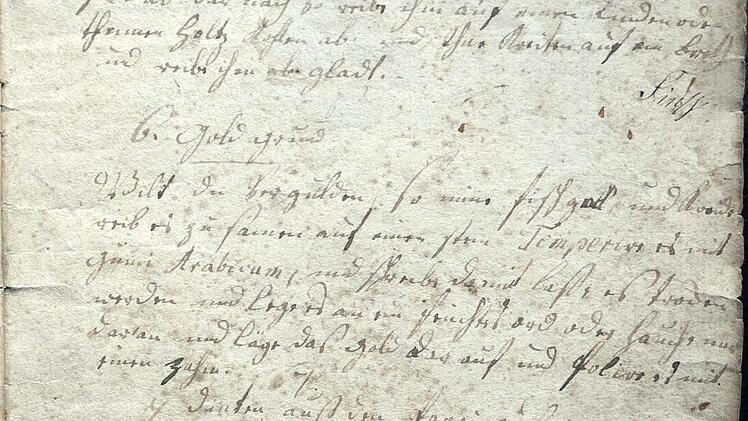 dar nach so reibe ihn auf einen Linden oder
thennen Holtz Kohlen abe und thue Kreiten auf ein bret
und reibe ihn gladt.
6. Gold grund
Wilt du Vergulden, so nime fischgall, und Kreide
reib es zu samen auf einen stein Temperire es mit
gumi Arabicum, und schreibe damit lasse es troden
werden und lege es an ein feuchtes ord oder hauche nur
daran und läge das gold dar auf und polire es mit
einen Zahn.
7
auß den